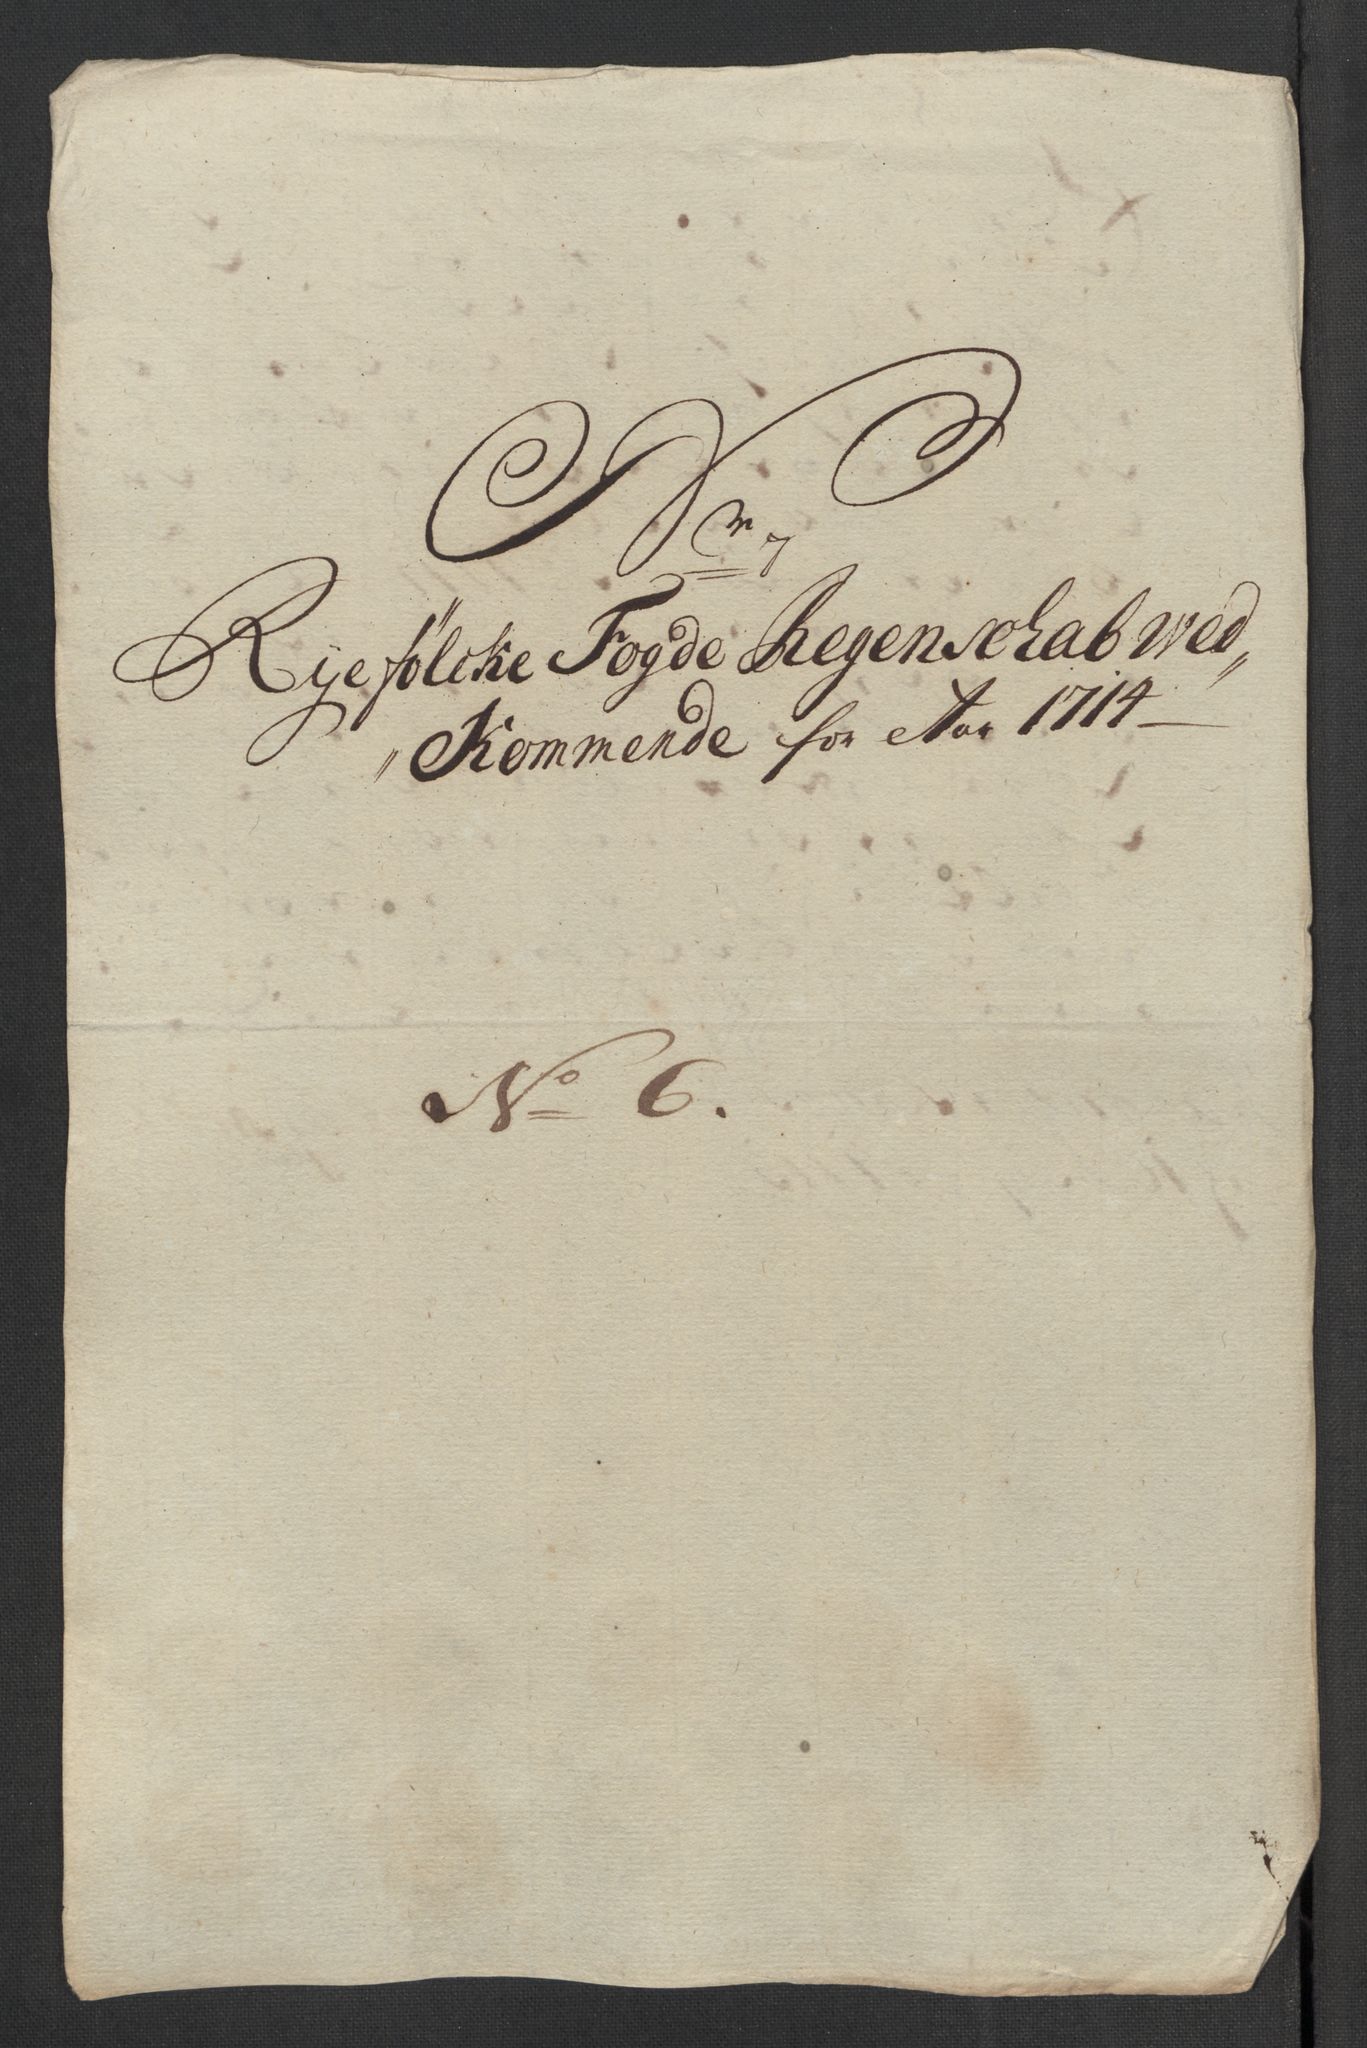 Nr 7
Ryefölcke Fogde Regenschab wed„
„Kommende for Aar 1714
No 6.